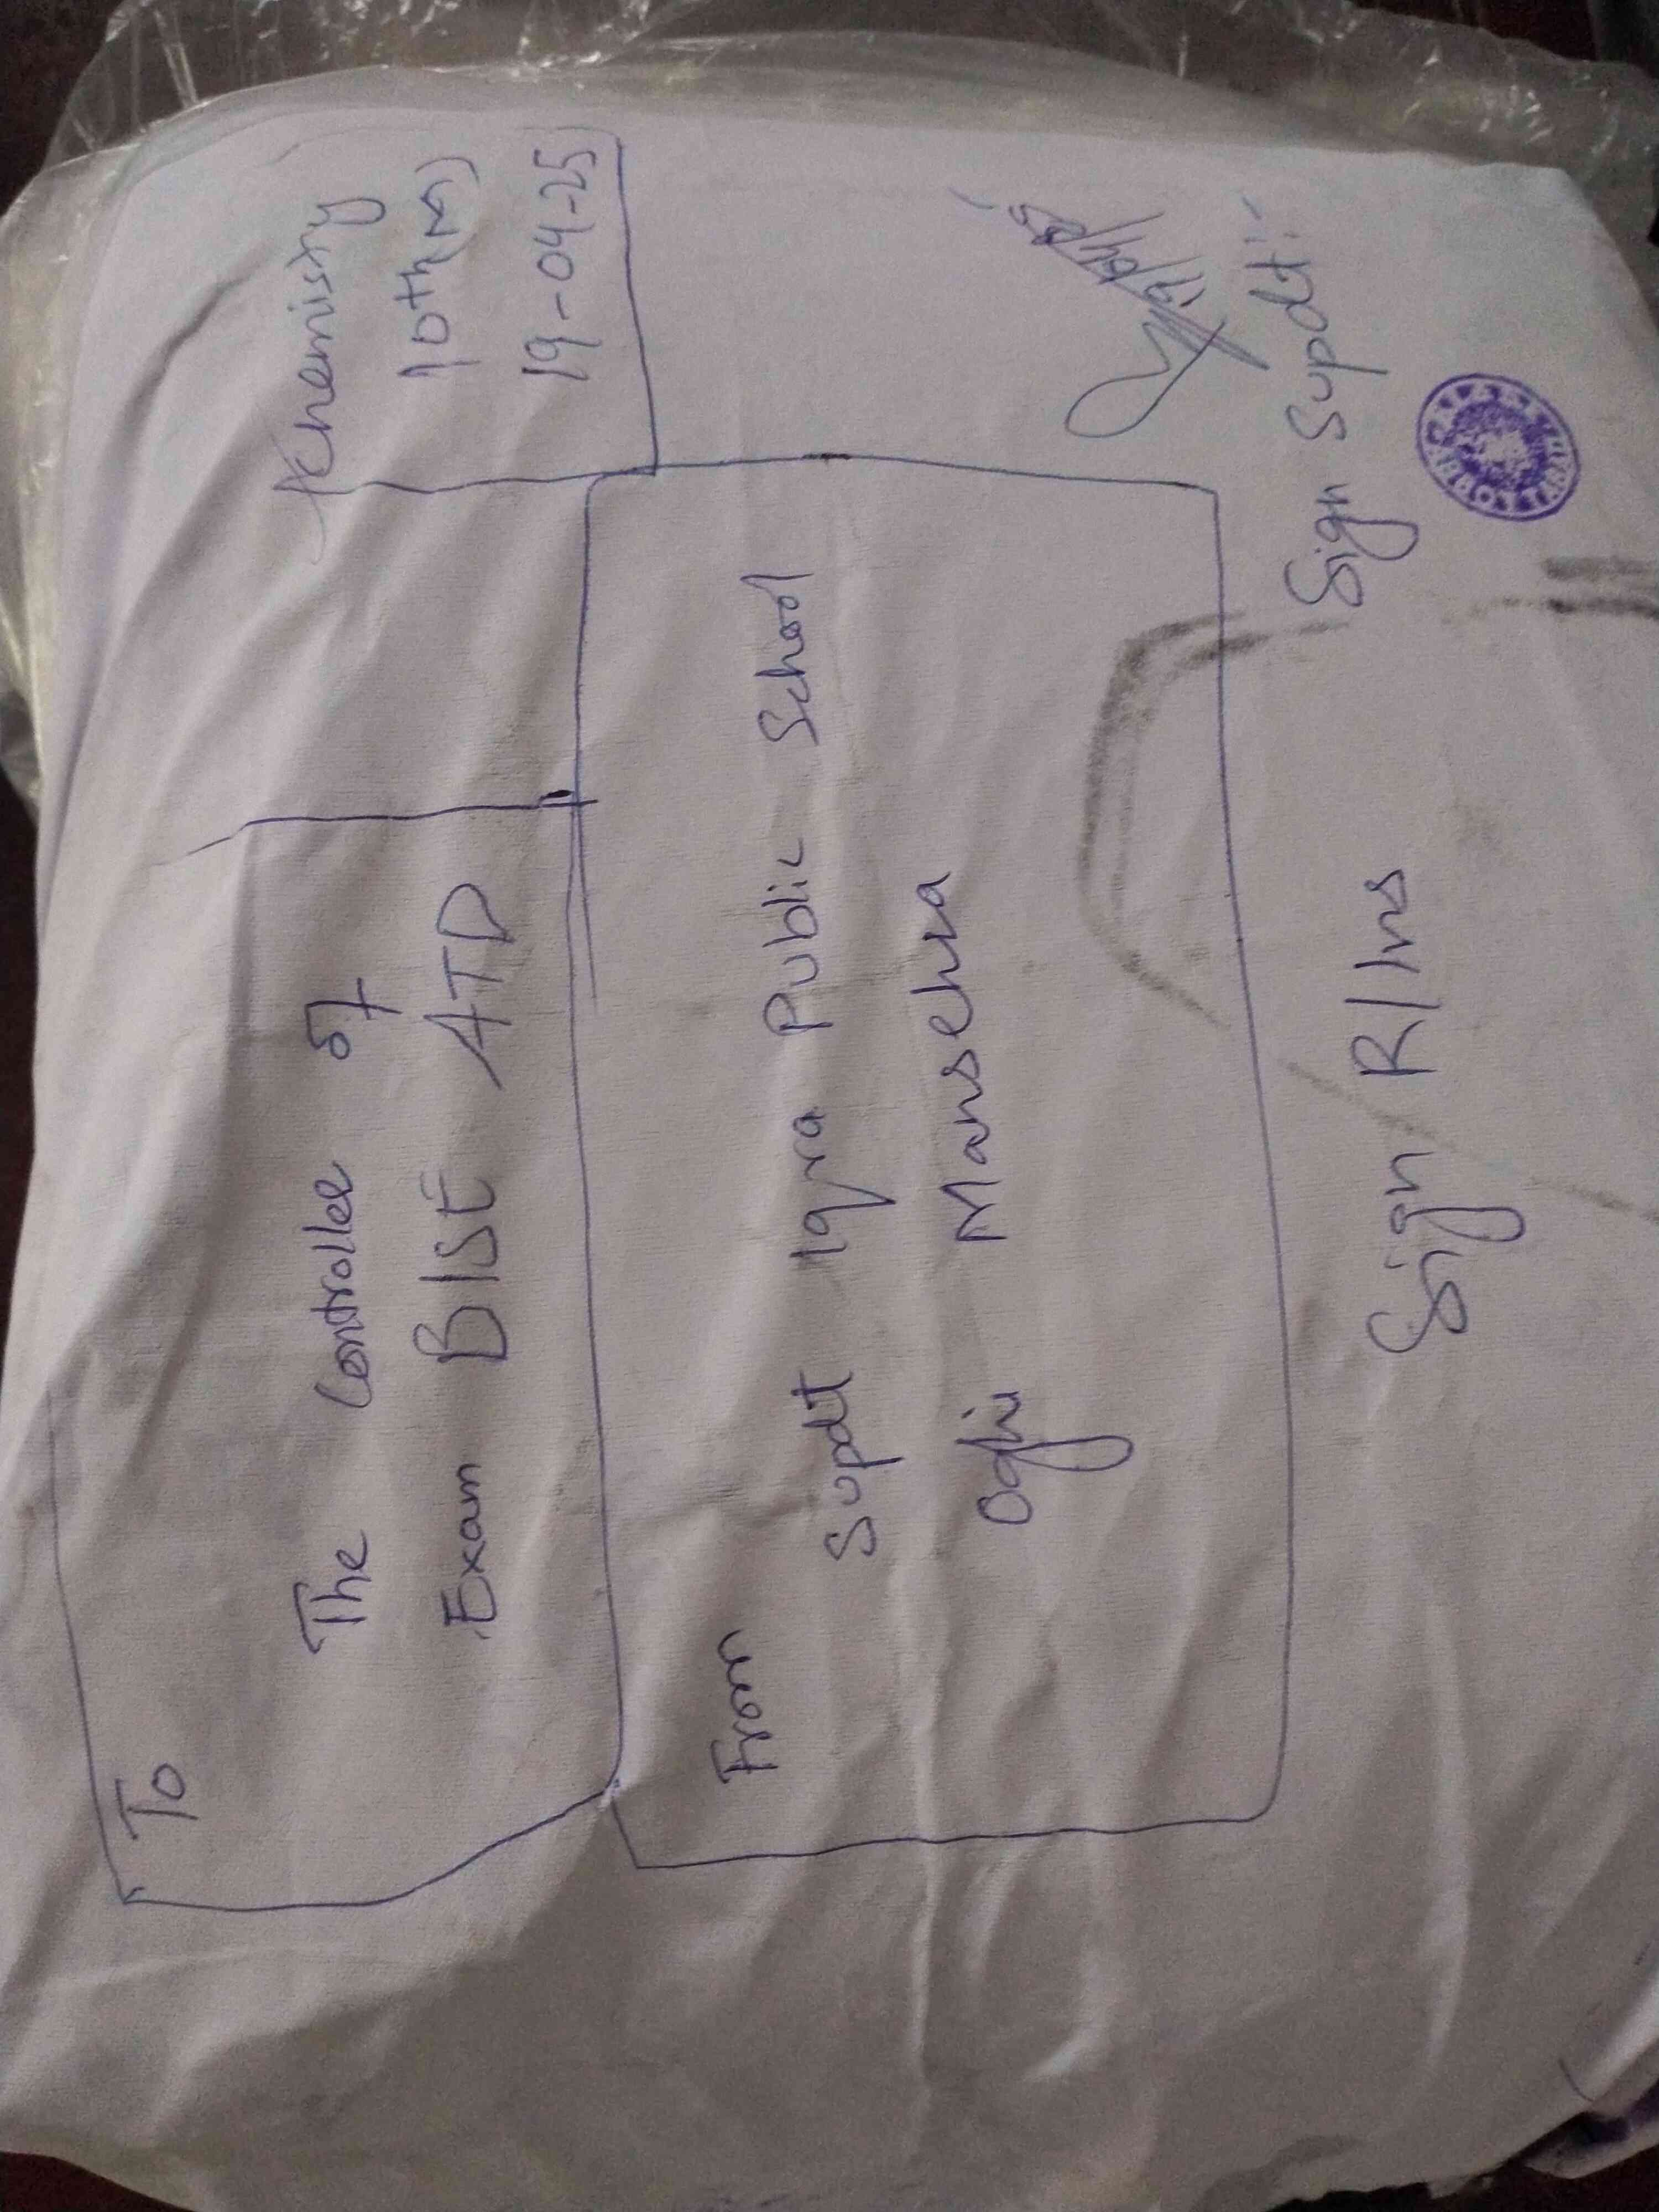 To
The Controller of
Exam BISE ATD
Chemistry
10th (M)
19-04-25
From
Supdt Iqra Public School
Oghi Mansehra
Sign Supdt:-
Sign R/Ins